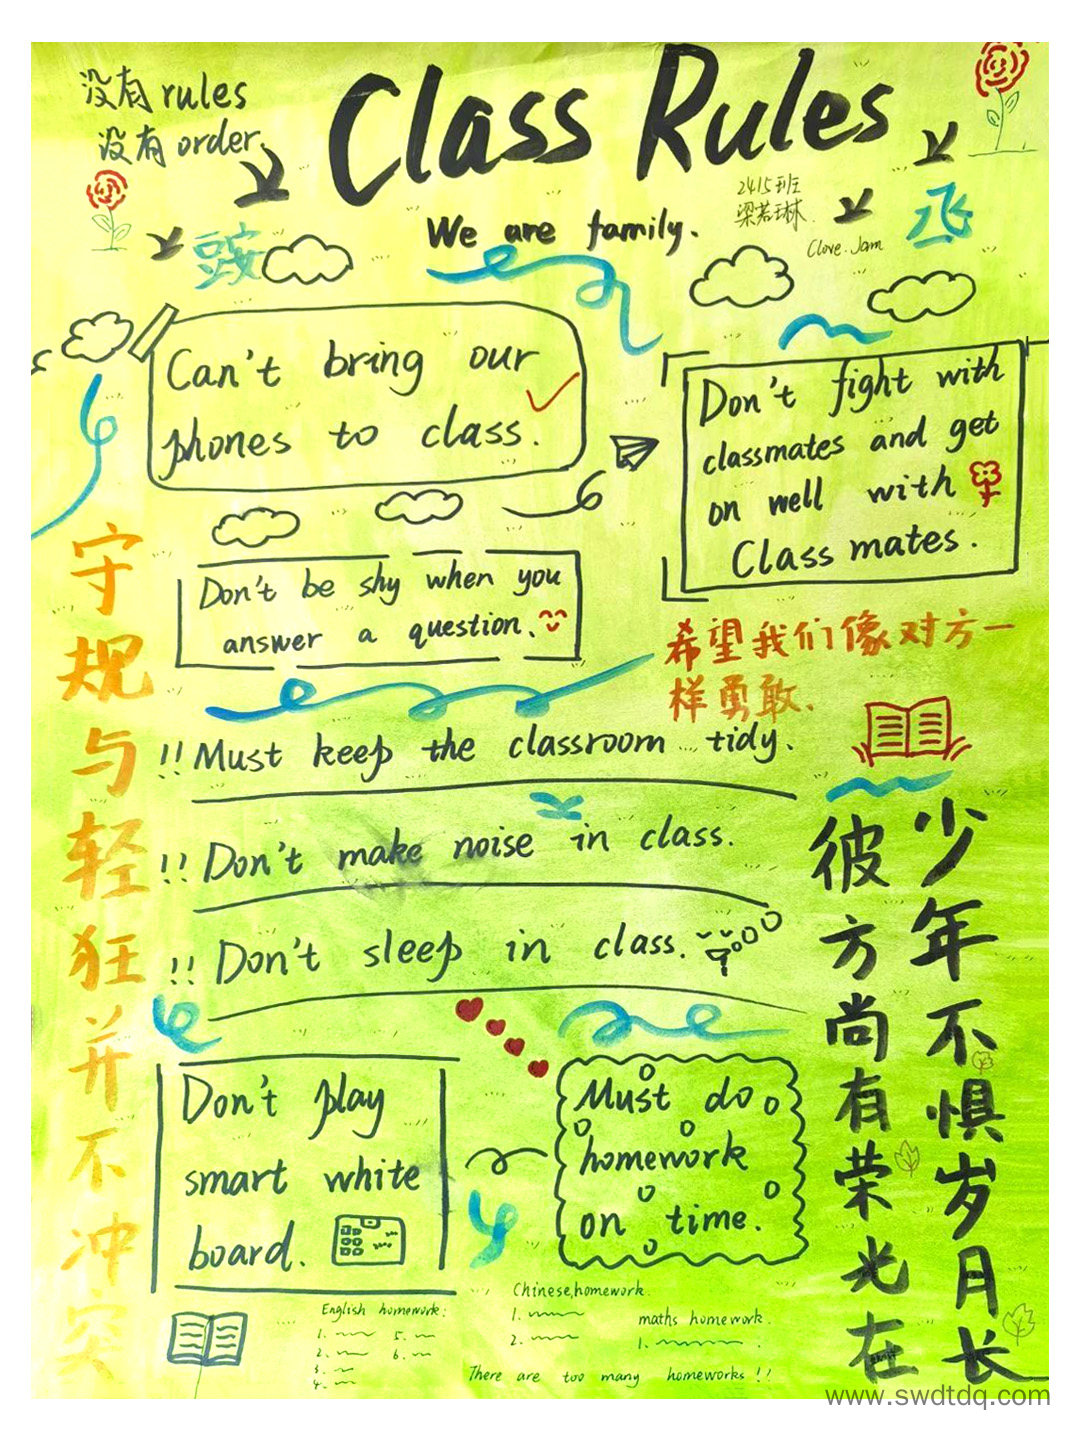 没有rules
没有order
Class Rules
2415班
梁若琳
We are family.
Clove.Jam
Can't bring our
phones to class.
Don't fight with
classmates and get
on well with
Classmates.
Don't be shy when you
answer a question.
希望我们像对方一
样勇敢.
守规与轻狂并不冲突
!! Must keep the classroom tidy.
!! Don't make noise in class.
!! Don't sleep in class.
少年不惧岁月长
彼方尚有荣光在
Don't play
smart white
board.
Must do
homework
on time.
English homework:
1.
2.
3.
4.
5.
6.
Chinese,homework.
1.
2.
maths homework.
1.
There are too many homeworks !!
www.swdtdq.com